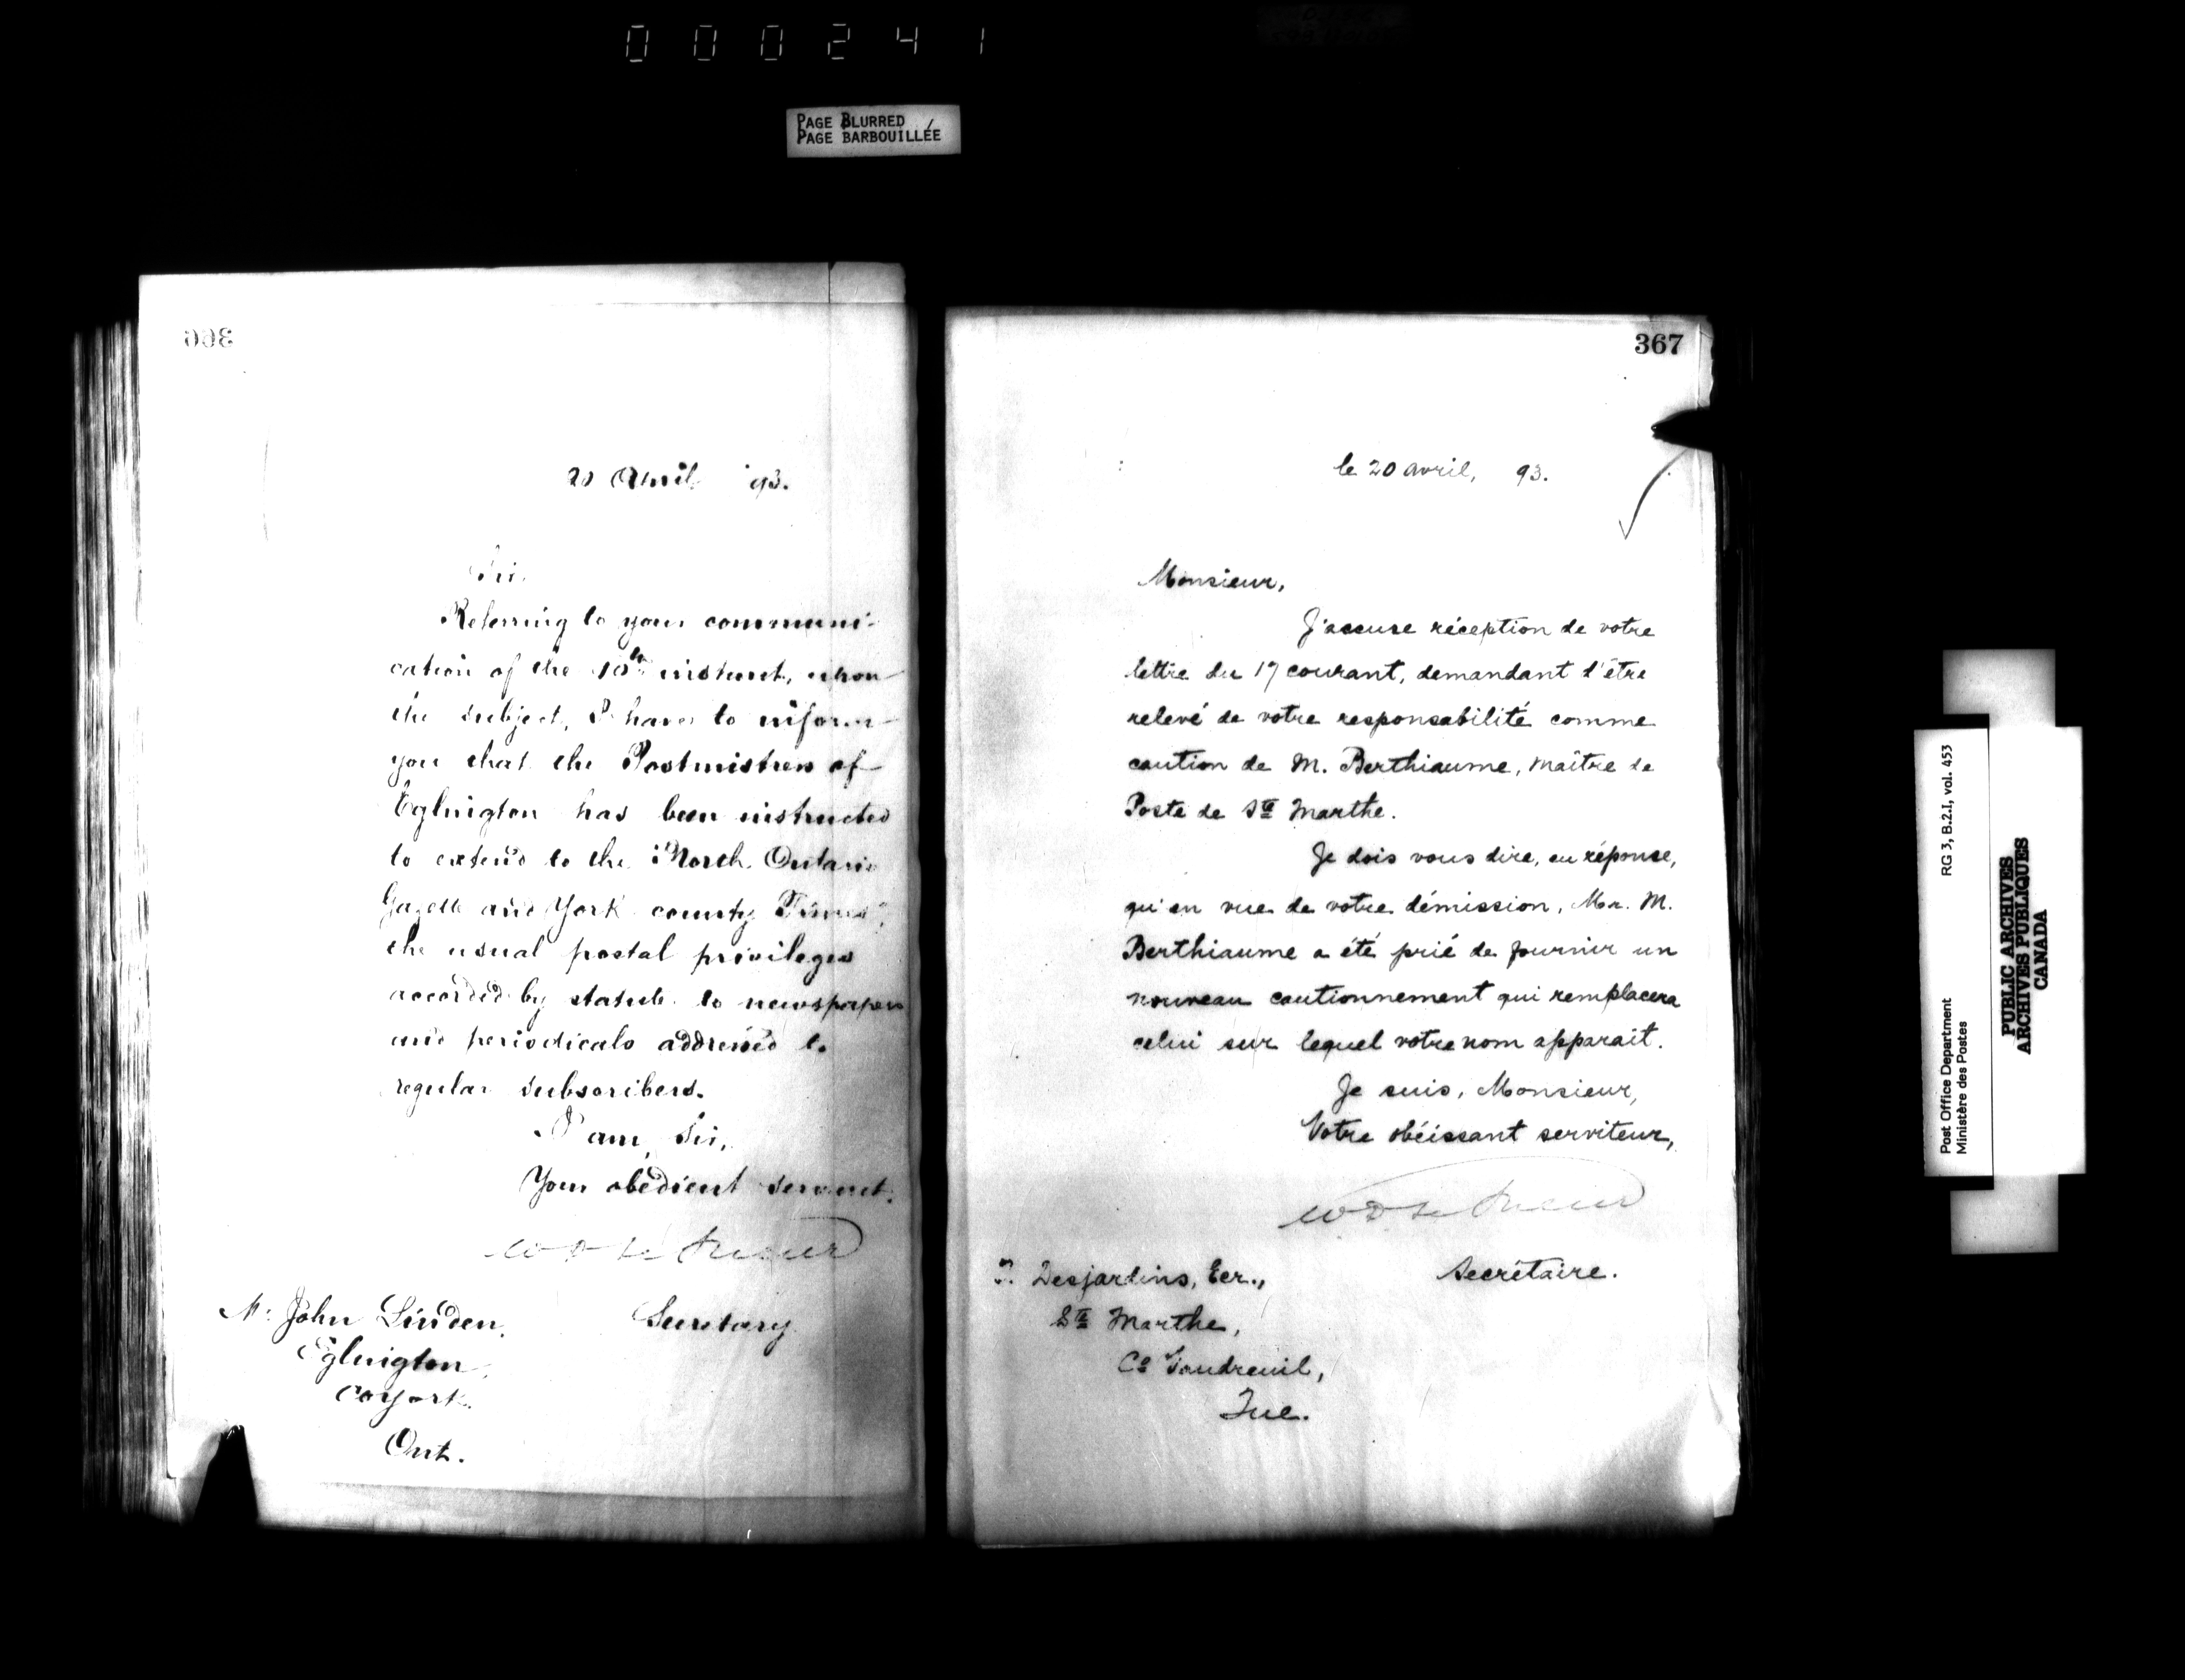 000241
PAGE BLURRED
PAGE BARBOUILLÉE
366
20 April '93.
Sir,
Referring to your communi-
cation of the 10th instant, upon
the subject, I have to inform
you that the Postmistress of
Eglinigton has been instructed
to extend to the "North Ontario
Gazette and York county Times",
the usual postal privileges
accorded by statute to newspapers
and periodicals addressed to
regular subscribers.
I am, Sir,
Your obedient servant.
W D Le Sueur
Secretary
Mr John Linden,
Eglinigton,
Co York.
Ont.
367
le 20 avril, 93.
Monsieur,
J'accuse réception de votre
lettre du 17 courant, demandant d'être
relevé de votre responsabilité comme
caution de M. Berthiaume, Maître de
Poste de Ste Marthe.
Je dois vous dire, en réponse,
qu'en vue de votre démission, Mr. M.
Berthiaume a été prié de fournir un
nouveau cautionnement qui remplacera
celui sur lequel votre nom apparait.
Je suis, Monsieur,
Votre obéissant serviteur,
W D Le Sueur
Secrétaire.
Desjardins, Ecr.,
Ste Marthe,
Co Vaudreuil,
Que.
Post Office Department
Ministère des Postes
RG 3, B.2.I, vol. 453
PUBLIC ARCHIVES
ARCHIVES PUBLIQUES
CANADA